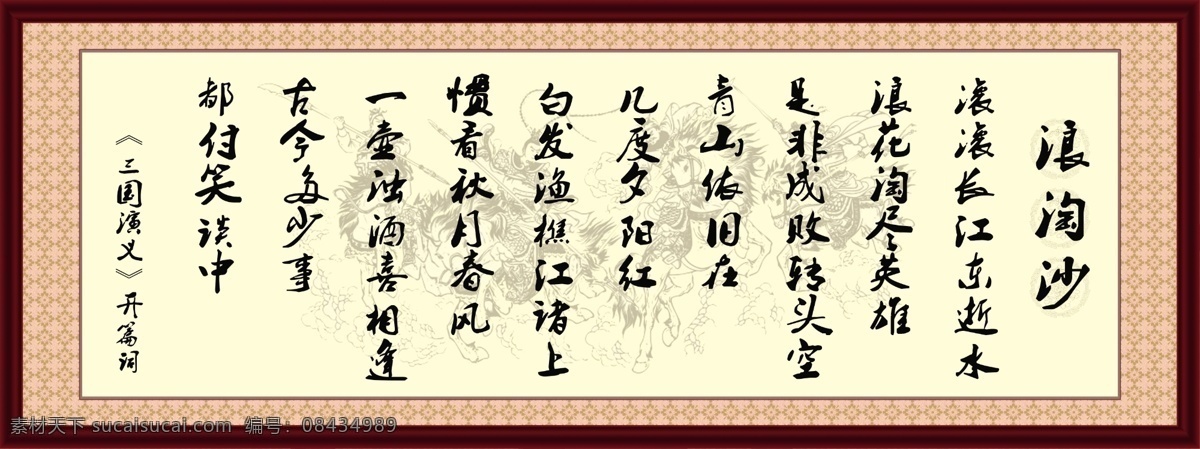 浪淘沙
滚滚长江东逝水
浪花淘尽英雄
是非成败转头空
青山依旧在
几度夕阳红
白发渔樵江诸上
惯看秋月春风
一壶浊酒喜相逢
古今多少事
都付笑谈中
《三国演义》开篇词
素材天下 sucaisucai.com 编号：08434989